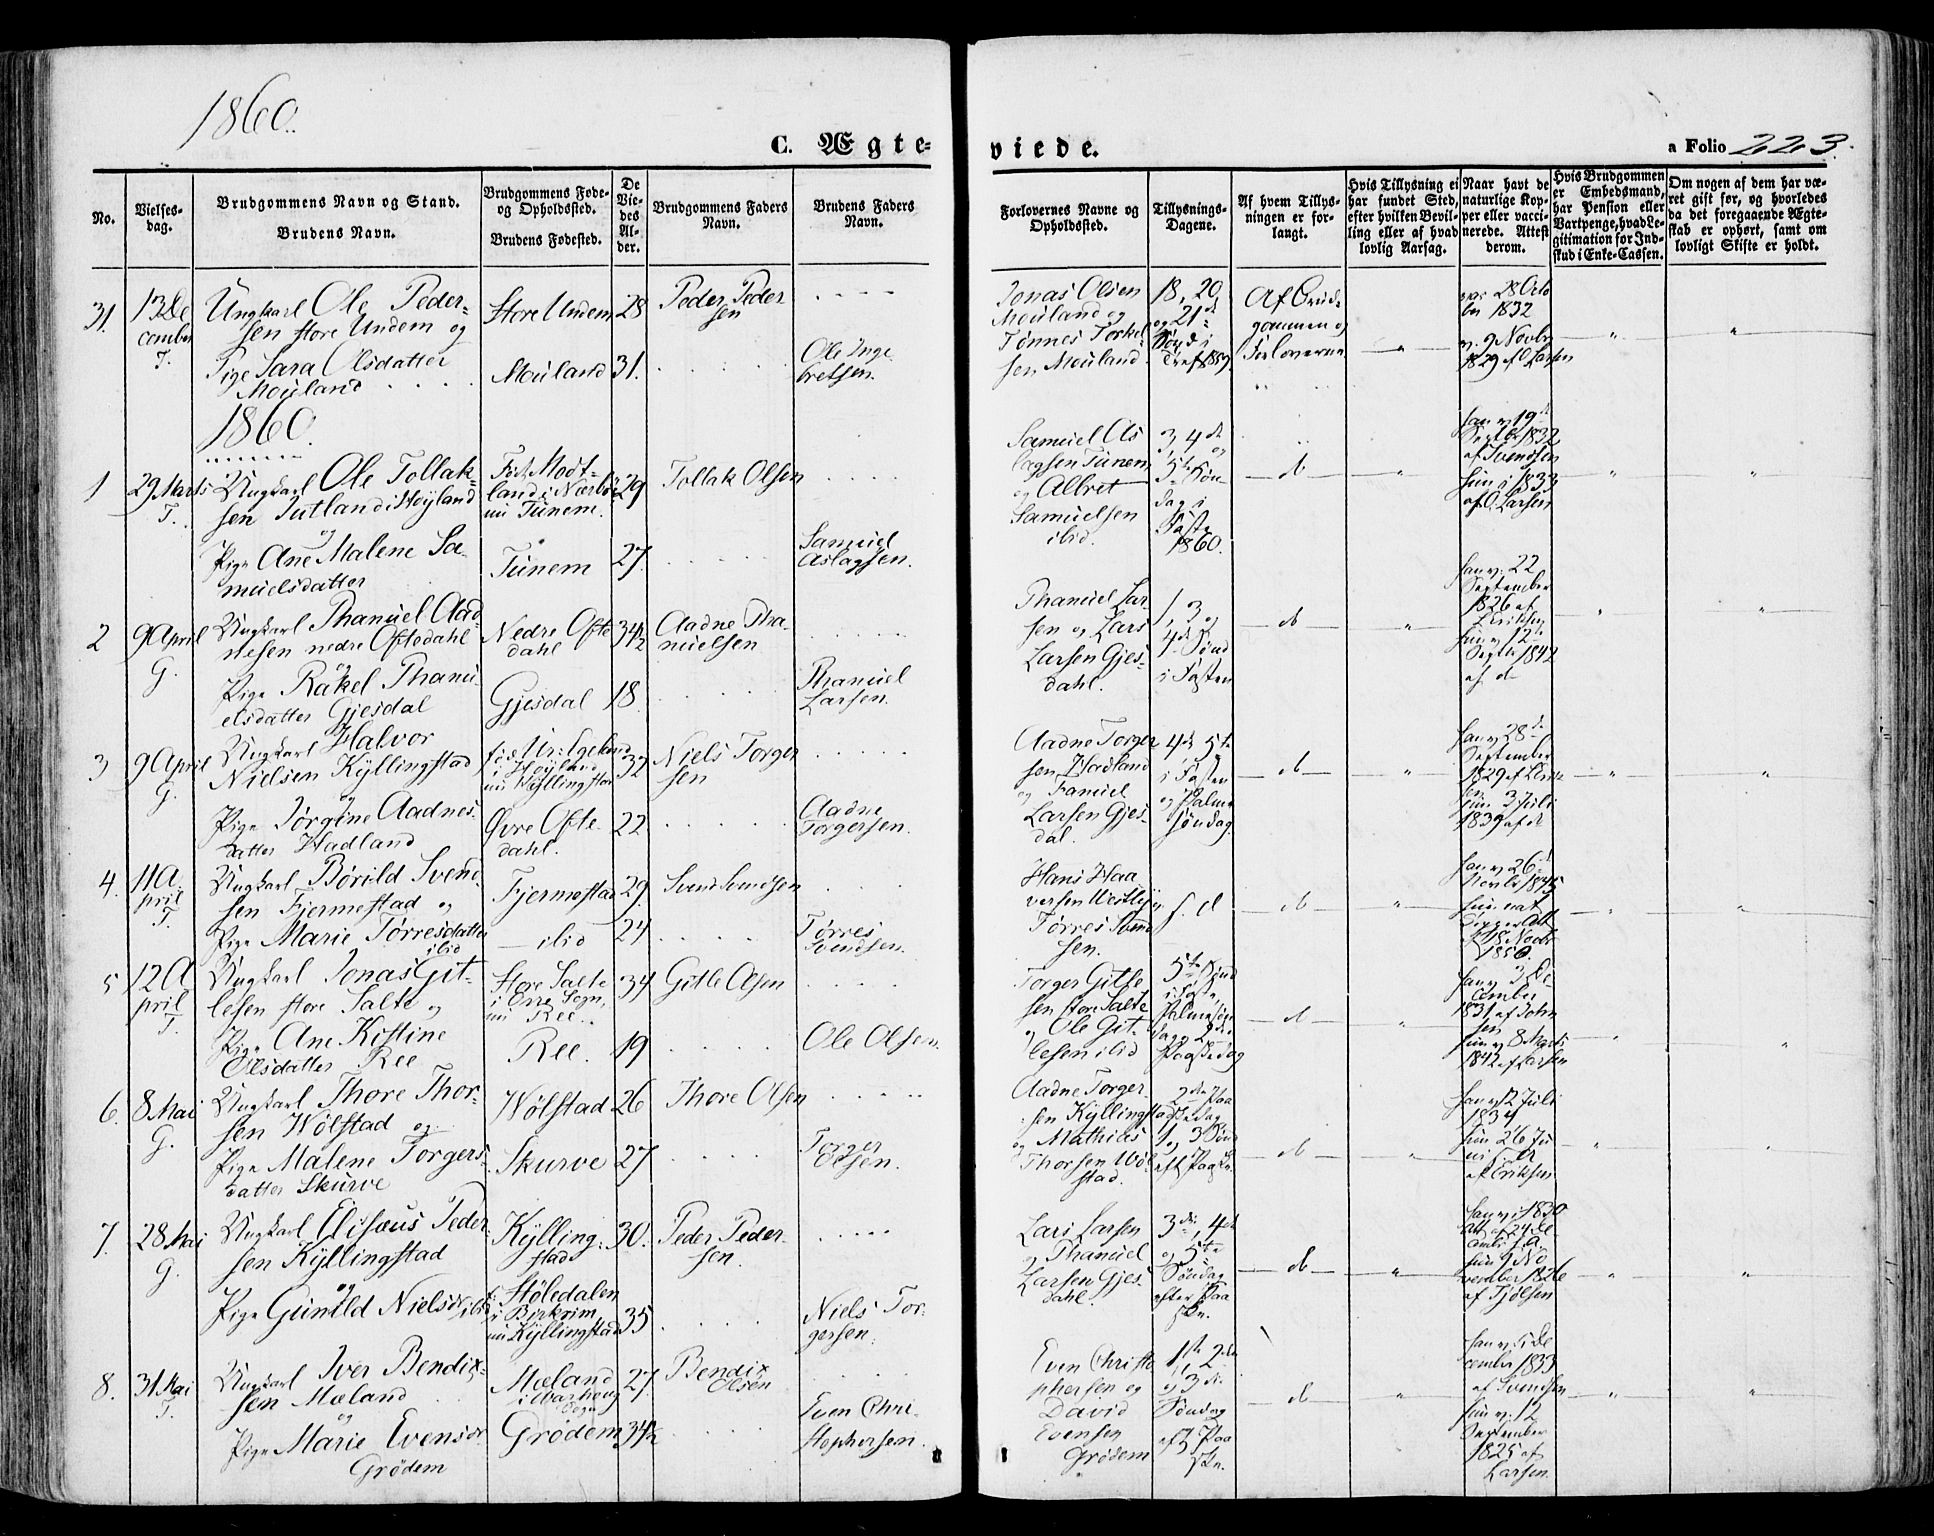 1860.
C. Ægte=
viede.
a Folio 223.
No.
Vielses-
dag.
Brudgommens Navn og Stand.
Brudens Navn.
Brudgommens Føde-
og Opholdssted.
Brudens Fødested.
De
Vie-
des
Al-
der.
Brudgommens Faders
Navn.
Brudens Faders
Navn.
Forlovernes Navne og
Opholdssted.
Tillysnings-
Dagene.
Af hvem Tillys-
ningen er for-
langt.
Hvis Tillysning ei
har fundet Sted,
efter hvilken Bevil-
ling eller af hvad
lovlig Aarsag.
Naar havt de
naturlige Kop-
per eller vacci-
nerede. Attest
derom.
Hvis Brudgommen
er Embedsmand,
har Pension eller
Vartpenge, hvad Le-
gitimation for Ind-
skud i Enke-Cassen.
Om nogen af dem har væ-
ret gift før, og hvorledes
da det foregaaende Ægte-
skab er ophørt, samt om
lovligt Skifte er holdt.
31.
13 De
cember
T.
Ungkarl Ole Peder-
sen store Undem og
Pige Sara Olsdatter
Mouland
Store Undem
Mouland
28
31.
Peder Peder
sen
Ole Inge
bretsen.
Jonas Olsen
Mouland og
Tønnes Torkel
sen Mouland
18, 20
og 21de
Sønd i
Tref 1859
Af Brud-
gommen og
Forloverne
28 Octo
br 1832
v. 9 Novbr
1829 af Larsen
1860.
1
29 Marts
T.
Ungkarl Ole Tollak-
sen Jutland i Høyland
og
Pige Ane Malene Sa-
muelsdatter
Fød Modt-
land i Nærbø
nu Tunem.
Tunem
29
27.
Tollak Olsen
Samuel
Aslagsen.
Samuel As
lagsen Tunem
og Albret
Samuelsen
ibid.
3, 4de og
5te Søn
dag i
Faste
1860.
do
han v. 19de
Septbr 1832
af Svendsen
hun i 1833
af O. Larsen
2
9 April
G.
Ungkarl Thamuel Aad-
nesen nedre Oftedahl
og
Pige Rakel Thamu-
elsdatter Gjesdal
Nedre Ofte
dahl
Gjesdal
34½
18
Aadne Tha-
muelsen
Thamuel
Larsen.
Thamuel Lar-
sen og Lars
Larsen Gjes-
dahl.
1, 3 og
4de Sønd
i Fasten
do
han v. 22
September
1826 af
Eriksen
hun v. 12te
Septbr 1842
af do
3
9 April
G.
Ungkarl Halvor
Nielsen Kyllingstad
og
Pige Jørgine Aadnes-
datter Hadland
i Høyland
nu Kyllingstad
Øvre Ofte
dahl.
32
22
Niels Torger
sen
Aadne
Torgersen.
Aadne Torger
sen Hadland
og Tamuel
Larsen Gjes-
dal.
4de 5te
i Fasten
og Palme
søndag
do
han v 28de
September
1829
hun 3 Juli
1839 af do
4.
11 A
pril
T.
Ungkarl Børild Svend-
sen Fjermestad og
Pige Marie Tørresdatter
ibid
Fjermestad
— ibid
29
24
Svend Svendsen
Tørres
Svendsen.
Hans Haa
versen Westly
Tørres Svend
sen.
do
han v 26
Novbr 1845
hun nat
18 Novbr
1850.
5
12 A
pril
T.
Ungkarl Jonas Git-
lesen store Salte og
Pige Ane Kistine
Olsdatter Ree
Store Salte
i Orre Sogn,
nu Ree.
Ree.
34
19
Gitle Olsen
Ole Olsen.
Torger Gitle
sen store Salte
og Ole Git-
lesen ibid
5te Sønd
i Faste,
Palmesøn
dag og 2den
Paaskedag
do
han v 3 De
cember
1831 af John
sen
hun v 8 Marts
1842 af Larsen
6.
8 Mai
G.
Ungkarl Thore Thor-
sen Wølstad og
Pige Malene Torgers-
datter Skurve
Wølstad
Skurve
26
27
Thore Olsen
Torger
Olsen.
Aadne Torger-
sen Kyllingstad
og Mathias
Thorsen Wøl
stad.
2den Paa
skedag
1 og 3 Sønd
eft Paaske.
do
han v 12 Juli
1834
hun 26 Ju
ni
af Eriksen
7.
28 Mai
G.
Ungkarl Elisæus Peder-
sen Kyllingstad
og
Pige Gunild Nielsdr ibid
Kylling-
stad
f. Høledalen
i Birkrim
nu Kyllingstad
30.
35
Peder Peder-
sen.
Niels Tor-
gersen.
Lars Larsen
og Thamuel
Larsen Gjes-
dahl.
3die, 4de
og 5te
Søndag
efter Paa
ske.
do
han v. i 1830
att af 24 De
cembr
hun 9 No
vember 1826
af Tjølsen
8.
31 Mai
T.
Ungkarl Iver Bendix-
sen Mæland
og
Pige Marie Evensdr
Grødem
Mæland
i Warhoug
Sogn
Grødem
27.
34½
Bendix
Olsen
Even Chri-
stophersen.
Even Christo
phersen og
David
Evensen
Grødem
1ste, 2den
og 3die
Søndag
eft Paa
ske.
do
han v. 5 De
cember 1833
af Svendsen
hun v. 12
September
1825 af
Larsen.